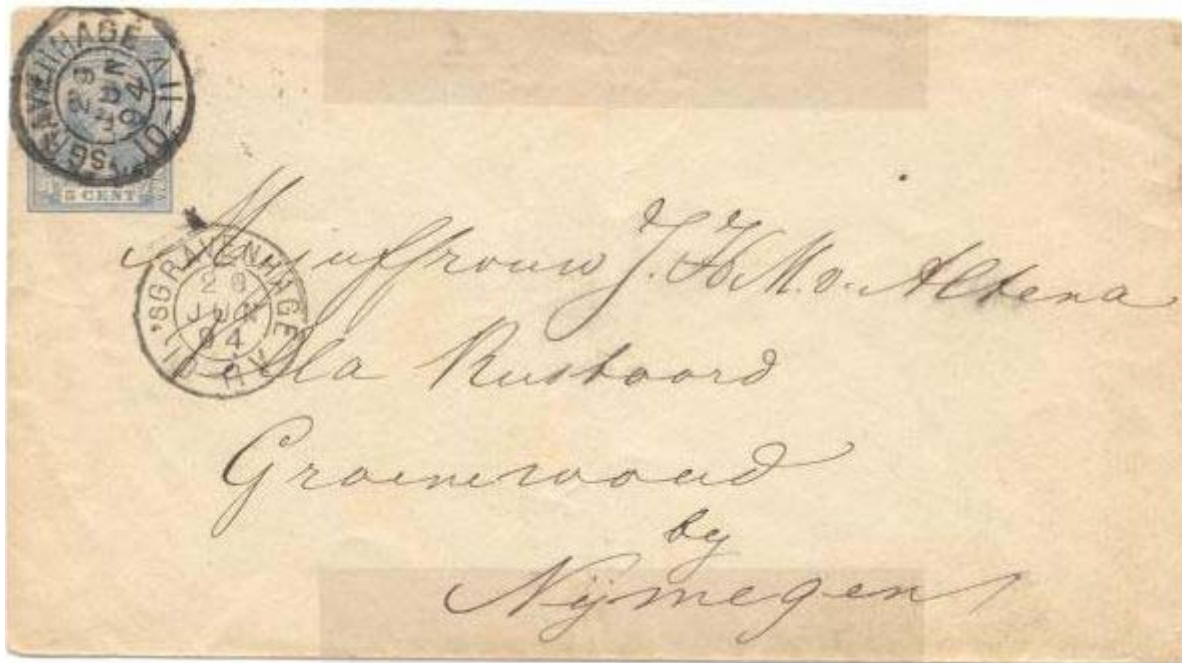 'SGRAVENHAGE
5 CENT
'SGRAVENHAGE
JUN
94
Mejuffrouw J. H. M. v. Altena
Villa Rustoord
Groenewoud
by
Nijmegen